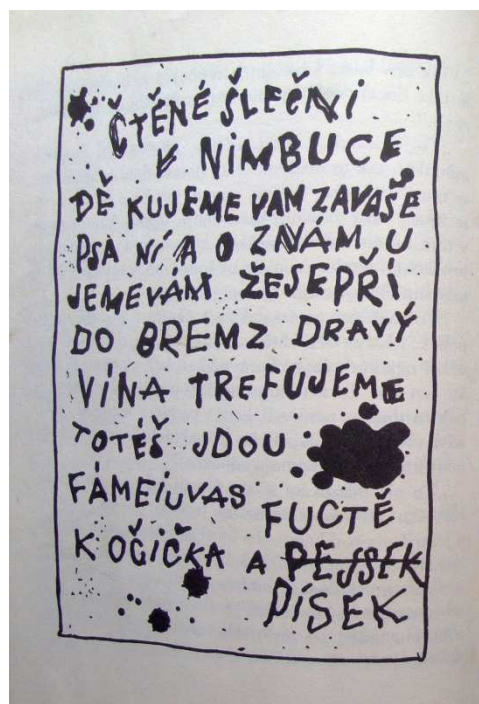 ČTĚNÉ ŠLEČNI
V NIMBUCE
DĚ KUJEME VAM ZAVAŠE
PSA NÍ A O ZNÁM U
JEMEVÁM ŽESEPŘÍ
DO BREMZ DRAVÝ
VÍNA TREFUJEME
TOTÉŠ JDOU
FÁMEIUVAS
FUCTĚ
KOČIČKA A PĚJSEK
PÍSEK